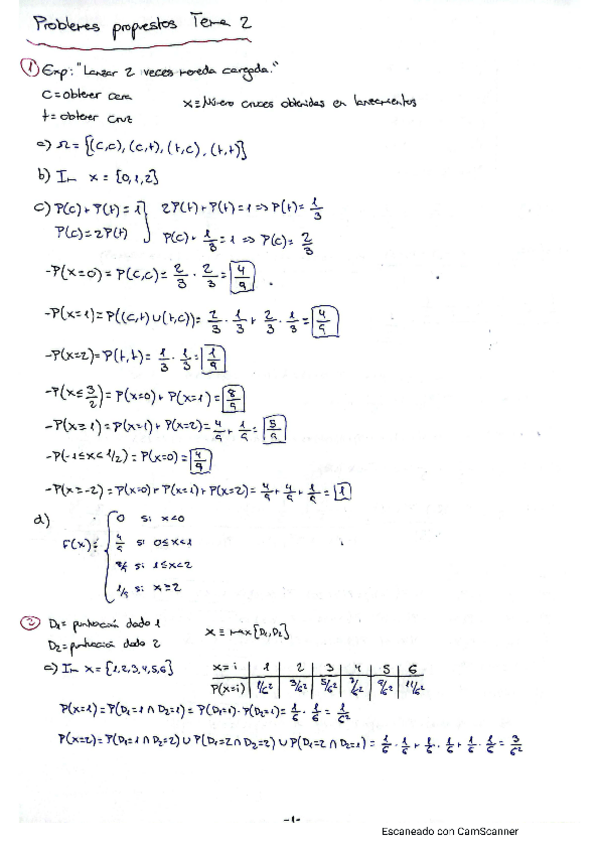 Problemas propuestos Tema 2
① Exp: "Lanzar 2 veces moneda cargada."
C = obtener cara
t = obtener cruz
X ≡ Número cruces obtenidas en lanzamientos
a) Ω = {(C,C), (C,t), (t,C), (t,t)}
b) Im X = {0,1,2}
c) P(c) + P(t) = 1
P(c) = 2P(t)
2P(t) + P(t) = 1 => P(t) = 1/3
P(c) + 1/3 = 1 => P(c) = 2/3
-P(X=0) = P(C,C) = 2/3 · 2/3 = 4/9
-P(X=1) = P((C,t) ∪ (t,C)) = 2/3 · 1/3 + 2/3 · 1/3 = 4/9
-P(X=2) = P(t,t) = 1/3 · 1/3 = 1/9
-P(X ≤ 3/2) = P(X=0) + P(X=1) = 8/9
-P(X ≥ 1) = P(X=1) + P(X=2) = 4/9 + 1/9 = 5/9
-P(-1 ≤ X < 1/2) = P(X=0) = 4/9
-P(X ≥ -2) = P(X=0) + P(X=1) + P(X=2) = 4/9 + 4/9 + 1/9 = 1
d)
F(x) =
0 si x<0
4/9 si 0≤x<1
8/9 si 1≤x<2
1/9 si x≥2
② D1 = puntuación dado 1
D2 = puntuación dado 2
X ≡ max{D1,D2}
a) Im X = {1,2,3,4,5,6}
X = i 1 2 3 4 5 6
P(X=i) 1/6² 3/6² 5/6² 7/6² 9/6² 11/6²
P(X=1) = P(D1=1 ∩ D2=1) = P(D1=1) · P(D2=1) = 1/6 · 1/6 = 1/6²
P(X=2) = P(D1=1 ∩ D2=2) ∪ P(D1=2 ∩ D2=2) ∪ P(D1=2 ∩ D2=1) = 1/6 · 1/6 + 1/6 · 1/6 + 1/6 · 1/6 = 3/6²
-1-
Escaneado con CamScanner